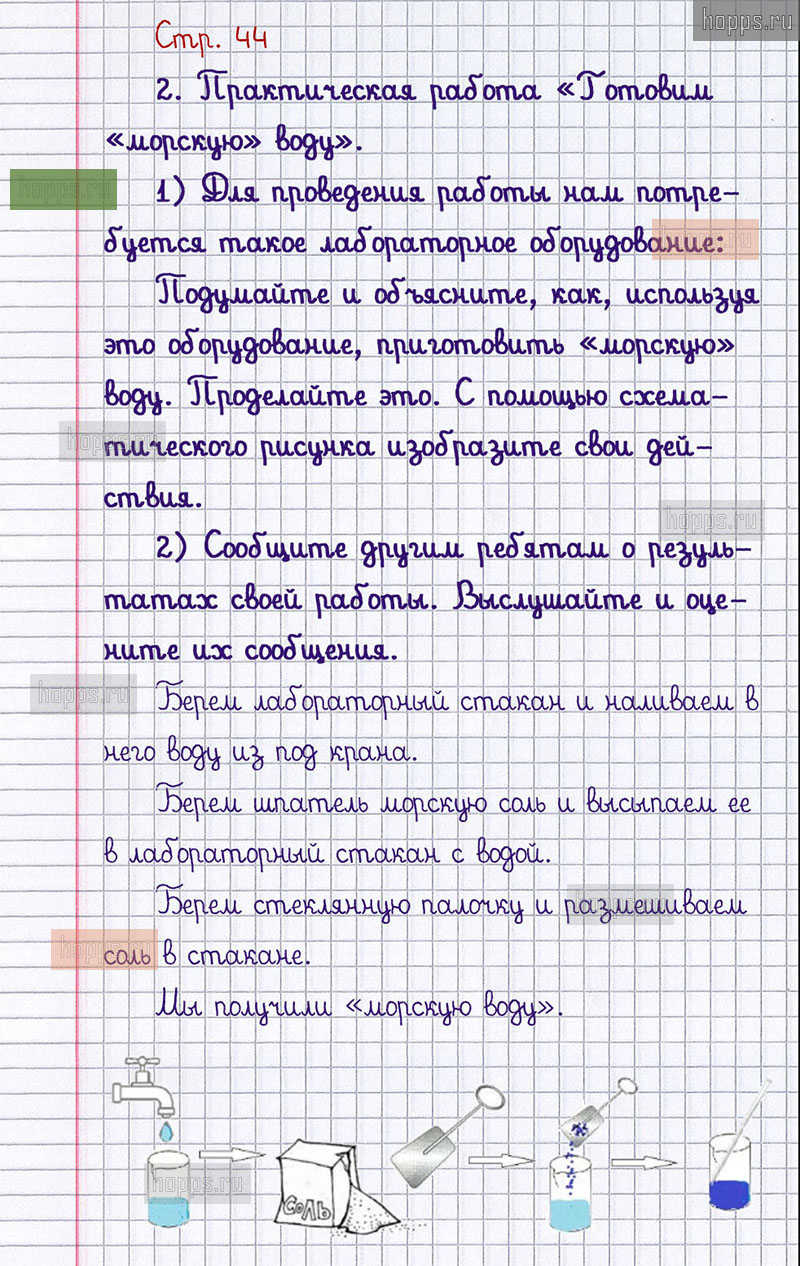 hopps.ru
Стр. 44
2. Практическая работа «Готовим
«морскую» воду».
hopps.ru
1) Для проведения работы нам потре-
буется такое лабораторное оборудование:
hopps.ru
Подумайте и объясните, как, используя
это оборудование, приготовить «морскую»
воду. Проделайте это. С помощью схема-
hopps.ru
тического рисунка изобразите свои дей-
ствия.
hopps.ru
2) Сообщите другим ребятам о резуль-
татах своей работы. Выслушайте и оце-
ните их сообщения.
hopps.ru
Берем лабораторный стакан и наливаем в
него воду из под крана.
Берем шпатель морскую соль и высыпаем ее
в лабораторный стакан с водой.
Берем стеклянную палочку и размешиваем
hopps.ru
соль в стакане.
Мы получили «морскую воду».
hopps.ru
СОЛЬ